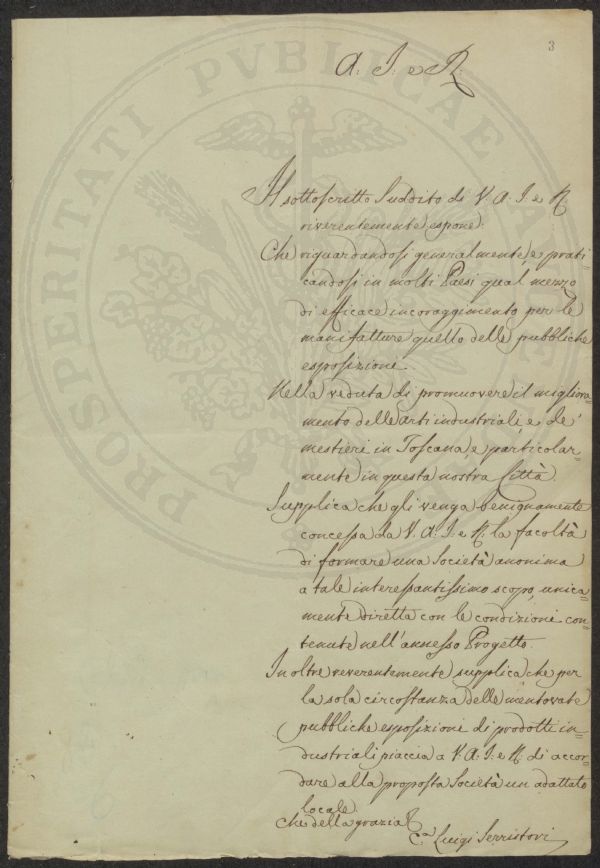 3
A: I: e R:
Il sottoscritto Suddito di V. A. I: e R.
riverentemente espone:
Che riguardandosi generalmente, e prati-
candosi in molti Paesi qual mezzo
di efficace incoraggimento per le
manifatture quello delle pubbliche
esposizione.
Nella veduta di promuovere il migliora-
mento delle arti industriali, e de'
mestieri in Toscana, e particolar-
mente in questa nostra Città.
Supplica che gli venga benignamente
concessa da V. A: I: e R: la facoltà
di formare una Società anonima
a tale interessantissimo scopo, unica-
mente diretta con le condizioni con-
tenute nell'annesso Progetto.
In oltre reverentemente supplica che per
la sola circostanza delle mentovate
pubbliche esposizioni di prodotti in-
dustriali piaccia a V. A: I: e R. di accor-
dare alla proposta Società un adattato
locale.
Che della grazia &
Luigi Serristori
PROSPERITATI PVBLICAE